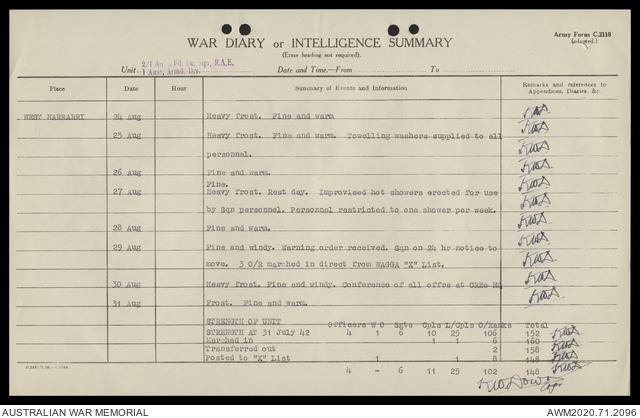 WAR DIARY or INTELLIGENCE SUMMARY
Army Form C.2118
(adapted.)
(Erase heading not required).
Unit 2/1 Fd. Pk. Sqn, R.A.E. Date and Time.—From To
1 Aust. Armd. Div.
Place Date Hour Summary of Events and Information Remarks and references to Appendices, Diaries, &c.
WEST NARRABRY 24 Aug Heavy frost. Fine and warm KWD
25 Aug Heavy frost. Fine and warm. Towelling washers supplied to all KWD
personnel. KWD
26 Aug Fine and warm. KWD
Fine.
27 Aug Heavy frost. Rest day. Improvised hot showers erected for use KWD
by Sqn personnel. Personnel restricted to one shower per week. KWD
28 Aug Fine and warm. KWD
29 Aug Fine and windy. Warning order received. Sqn on 24 hr notice to KWD
move. 3 O/R marched in direct from WAGGA "X" List. KWD
30 Aug Heavy frost. Fine and windy. Conference of all offrs at CREs HQ KWD
31 Aug Frost. Fine and warm. KWD
STRENGTH OF UNIT Officers W O Sgts Cpls L/Cpls O/Ranks Total
STRENGTH AT 31 July 42 4 1 6 10 25 106 152 KWD
Marched in 1 1 6 160 KWD
Transferred out 2 158 KWD
Posted to "X" List 1 1 8 148 KWD
4 - 6 11 25 102 148 KWD
AUSTRALIAN WAR MEMORIAL
AWM2020.71.2096